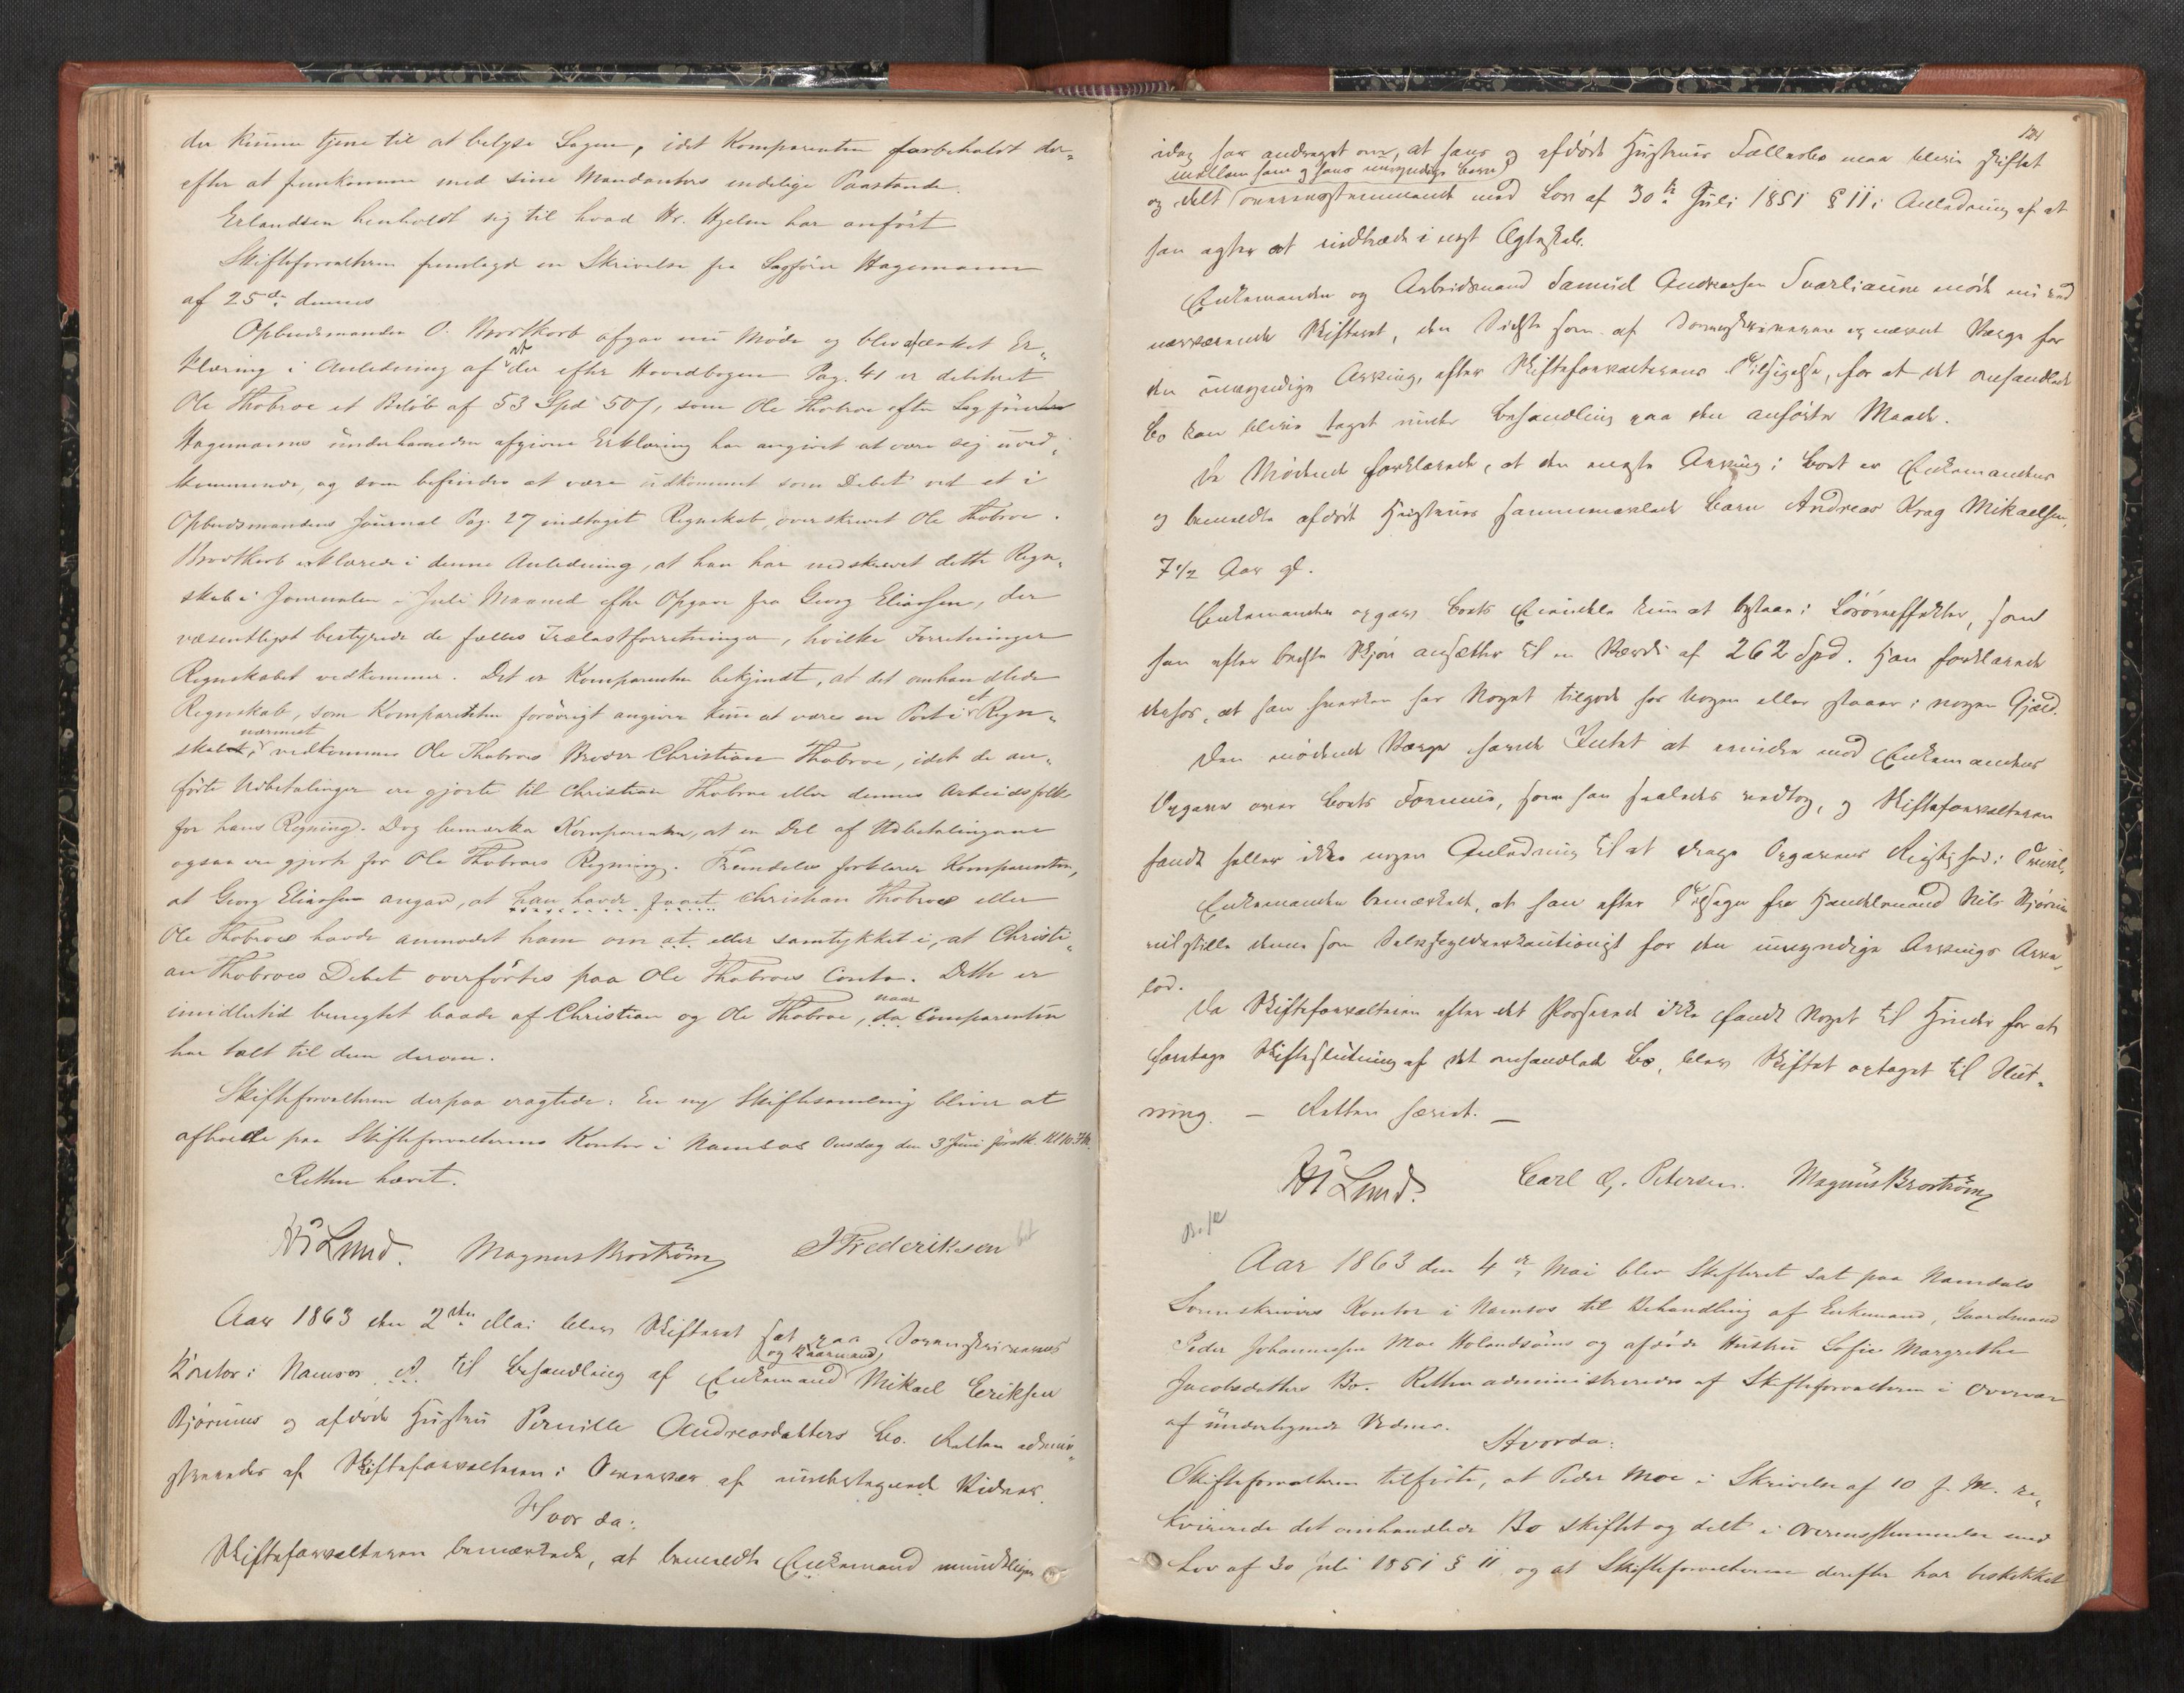 der kunne tjene til at belyse Sagen, idet Komparenten forbeholdt der-
efter at fremkomme med sine Mandanters endelige Paastande.
Erlandsen henholdt sig til hvad Hr. Hjelm har anført
Skifteforvalteren fremlagde en Skrivelse fra Sagfører Hagemann
af 25de dennes
Opbudsmanden O. Brodtkorb afgav nu Møde og blev afæsket Er-
klæring i Anledning af at der efter Hovedbogen Pag. 41 er debiteret
Ole Thobroe et Beløb af 53 Spd 50 s, som Ole Thobroe efter Sagfører
Hagemanns underhaanden afgivne Erklæring har angivet at være sig uved-
kommende, og som befindes at være udkommet som Debet ved et i
Opbudsmandens Journal Pag. 27 indtaget Regnskab, overskrevet Ole Thobroe.
Brodtkorb erklærede i denne Anledning, at han har nedskrevet dette Regn-
skab i Journalen i Juli Maaned efter Opgave fra Georg Eliassen, der
væsentligst bestyrede de fælles Trælastforretninger, hvilke Forretninger
Regnskabet vedkommer. Det er Komparenten bekjendt, at det omhandlede
Regnskab, som Komparenten forøvrigt angiver kun at være en Post i et Regn-
skab, nærmest vedkommer Ole Thobroes Broder Christian Thobroe, idet de an-
førte Udbetalinger ere gjorte til Christian Thobroe eller dennes Arbeidsfolk
for hans Regning. Dog bemærker Komparenten, at en Del af Udbetalingerne
ogsaa ere gjorte for Ole Thobroes Regning. Fremdeles forklarer Komparenten,
at Georg Eliassen angav, at han havde faaet Christian Thobroe eller
Ole Thobroe havde anmodet ham om at eller samtykket i, at Christi-
an Thobroes Debet overførtes paa Ole Thobroes Conto. Dette er
imidlertid benegtet baade af Christian og Ole Thobroe, da naar Comparenten
har talt til dem derom.
Skifteforvalteren derpaa eragtede: En ny Skiftesamling bliver at
afholde paa Skifteforvalterens Kontor i Namsos Onsdag den 3 Juni førstk. Kl 10 Fm.
Retten hævet.
Lund. Magnus Broström J Frederiksen
Aar 1863 den 2den Mai blev Skifteret sat paa Sorenskriverens
Kontor i Namsos til Behandling af Enkemand og Kaarmand Mikael Eriksen
Bjørums og afdøde Hustru Pernille Andreasdatters Bo. Retten admini-
streredes af Skifteforvalteren i Overvær af undertegnede Vidner.
Hvor da:
Skifteforvalteren bemærkede, at bemeldte Enkemand mundtligen
124
idag har andraget om, at hans og afdøde Hustrues Fællesbo maa blive skiftet
mellem ham og hans umyndige Barn
og delt overensstemmende med Lov af 30te Juli 1851 § 11 i Anledning af at
han agter at indtræde i nyt Ægteskab.
Enkemanden og Arbeidsmand Samuel Andreassen Svarliaune mødte nu ved
nærværende Skifteret, den Sidste som af Sorenskriveren opnævnt Værge for
den umyndige Arving, efter Skifteforvalterens Tilsigelse, for at det omhandlede
Bo kan blive taget under Behandling paa den anførte Maade.
De Mødende forklarede, at den eneste Arving i Boet er Enkemandens
og bemeldte afdøde Hustrues sammenavlede Barn Andreas Krag Mikaelsen,
7 1/2 Aar gl.
Enkemanden opgav Boets Eiendele kun at bestaae i Løsøreeffekter, som
han efter bedste Skjøn ansætter til en Værdi af 262 Spd. Han forklarede
derhos, at han hverken har Noget tilgode hos Nogen eller staaer i nogen Gjæld.
Den mødende Værge havde Intet at erindre mod Enkemandens
Opgave over Boets Formue, som han saaledes vedtog, og Skifteforvalteren
fandt heller ikke nogen Anledning til at drage Opgavens Rigtighed i Tvivl.
Enkemanden bemærkede, at han efter Tilsagn fra Handelsmand Nils Bjørum
vil stille denne som Selvskyldnerkautionist for den umyndige Arvings Arve-
lod.
Da Skifteforvalteren efter det Passerede ikke fandt Noget til Hinder for at
foretage Skifteslutning af det omhandlede Bo, blev Skiftet optaget til Slut-
ning. — Retten hævet. —
Lund. Carl G. Petersen. Magnus Broström
Aar 1863 den 4de Mai blev Skifteret sat paa Namdals
Sorenskrivers Kontor i Namsos til Behandling af Enkemand, Gaardmand
Peder Johannessen Moe Holandsøens og afdøde Hustru Sofie Margrethe
Jacobsdatters Bo. Retten administreredes af Skifteforvalteren i Overvær
af undertegnede Vidner.
Hvorda:
Skifteforvalteren tilførte, at Peder Moe i Skrivelse af 10 f. M. re-
kvirerede det omhandlede Bo skiftet og delt i Overensstemmelse med
Lov af 30 Juli 1851 § 11 og at Skifteforvalteren derefter har beskikket